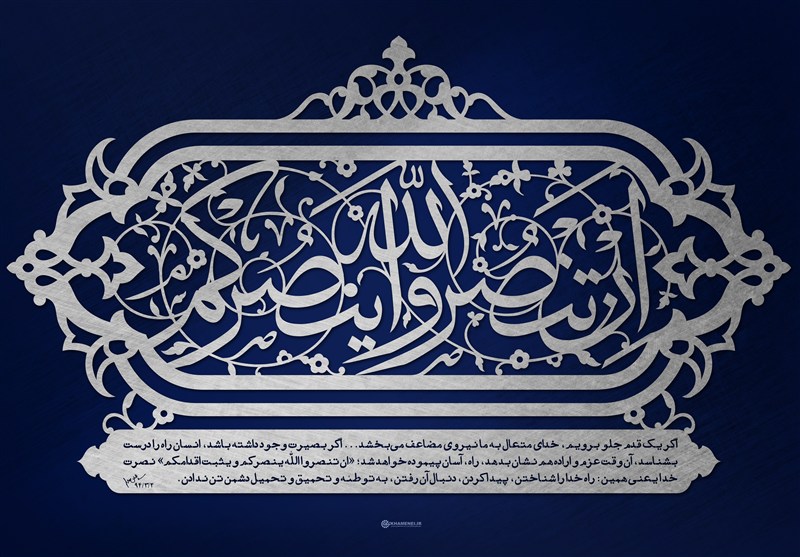 ان تنصروا الله ینصرکم
اگر یک قدم جلو برویم، خدای متعال به ما نیروی مضاعف می‌بخشد... اگر بصیرت وجود داشته باشد، انسان راه را درست
بشناسد، آن وقت عزم و اراده هم نشان بدهد، راه، آسان پیموده خواهد شد؛ «ان تنصروا الله ینصرکم و یثبت اقدامکم» نصرت
خدا یعنی همین: راه خدا را شناختن، پیدا کردن، دنبال آن رفتن، به توطئه و تحمیق و تحمیل دشمن تن ندادن.
KHAMENEI.IR